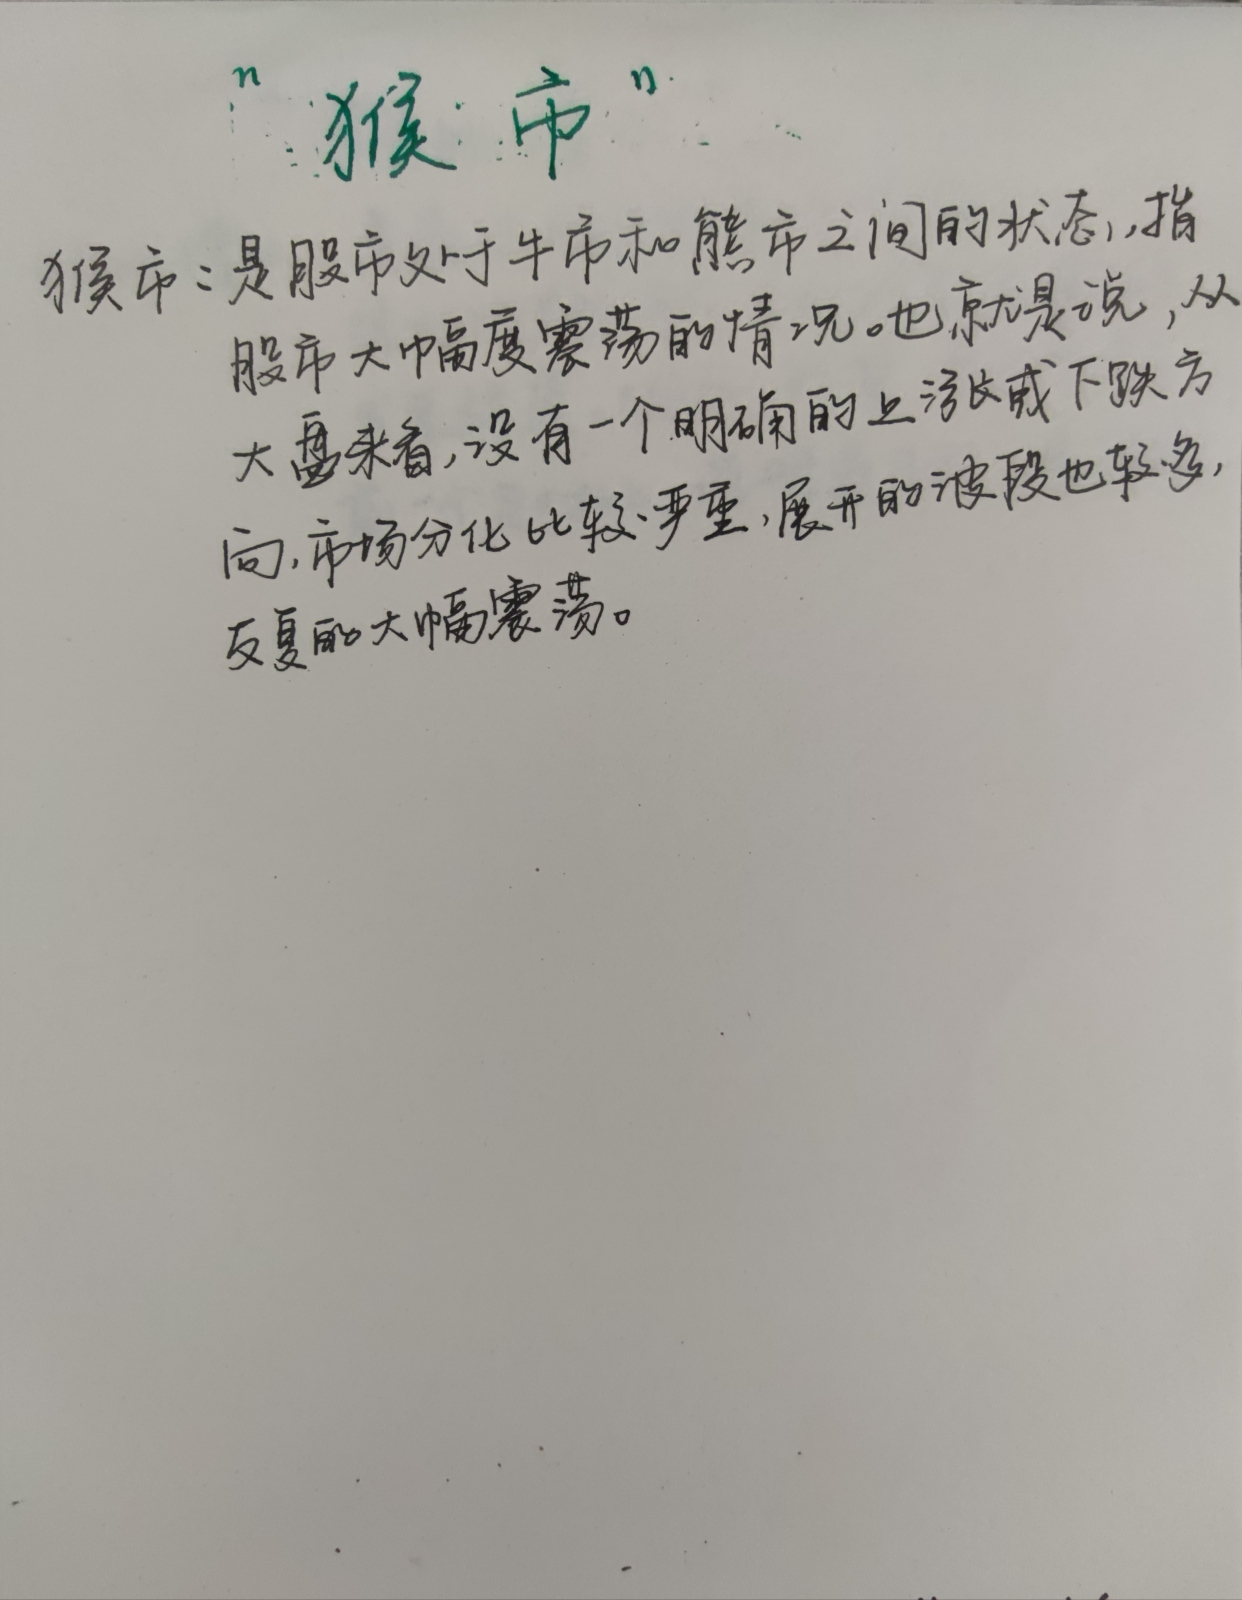 "猴市"
猴市：是股市处于牛市和熊市之间的状态，指
股市大幅度震荡的情况。也就是说，从
大盘来看，没有一个明确的上涨或下跌方
向，市场分化比较严重，展开的波段也较多，
反复的大幅震荡。